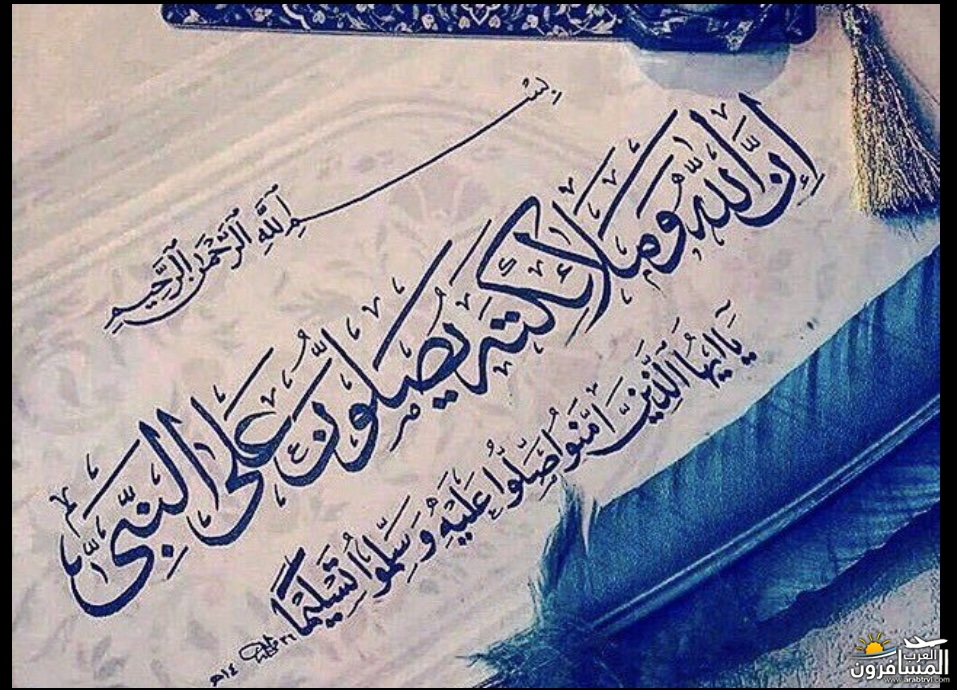 بِسْمِ ٱللَّهِ ٱلرَّحْمَٰنِ ٱلرَّحِيمِ
إِنَّ اللَّهَ وَمَلَائِكَتَهُ يُصَلُّونَ عَلَى النَّبِيِّ
يَا أَيُّهَا ٱلَّذِينَ آمَنُوا صَلُّوا عَلَيْهِ وَسَلِّمُوا تَسْلِيمًا
العرب
المسافرون
www.arabtrvl.com